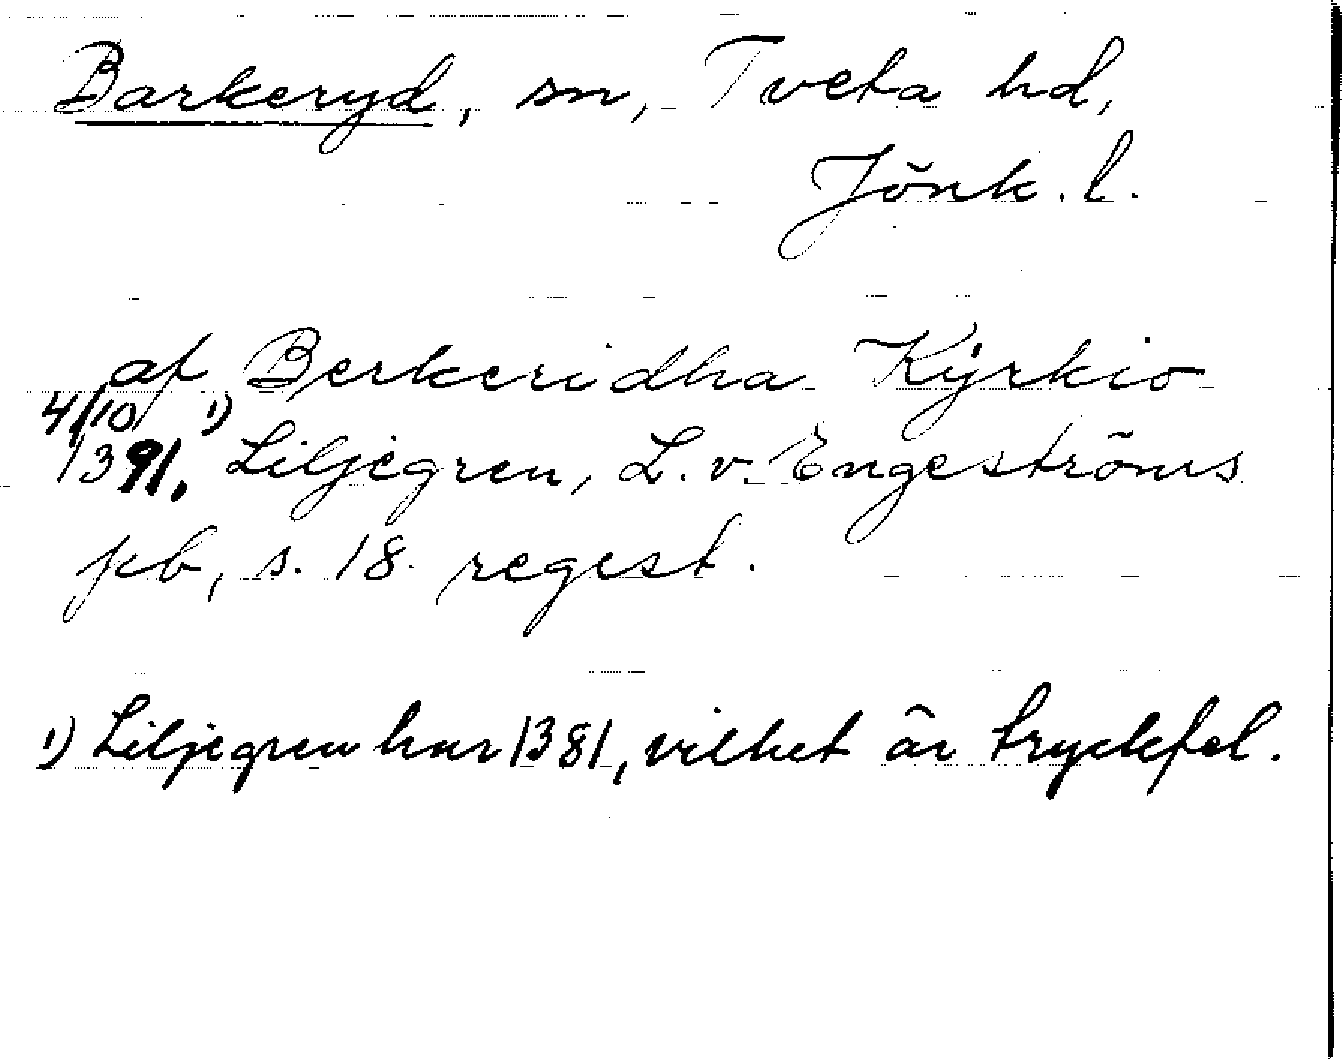 Barkeryd, sn, Tveta hd,
Jönk. l.
af Berkeridha Kyrkio
4/10 1)
1391. Liljegren, L. v. Engeströms
pb, s. 18. regest.
1) Liljegren har 1381, vilket är tryckfel.